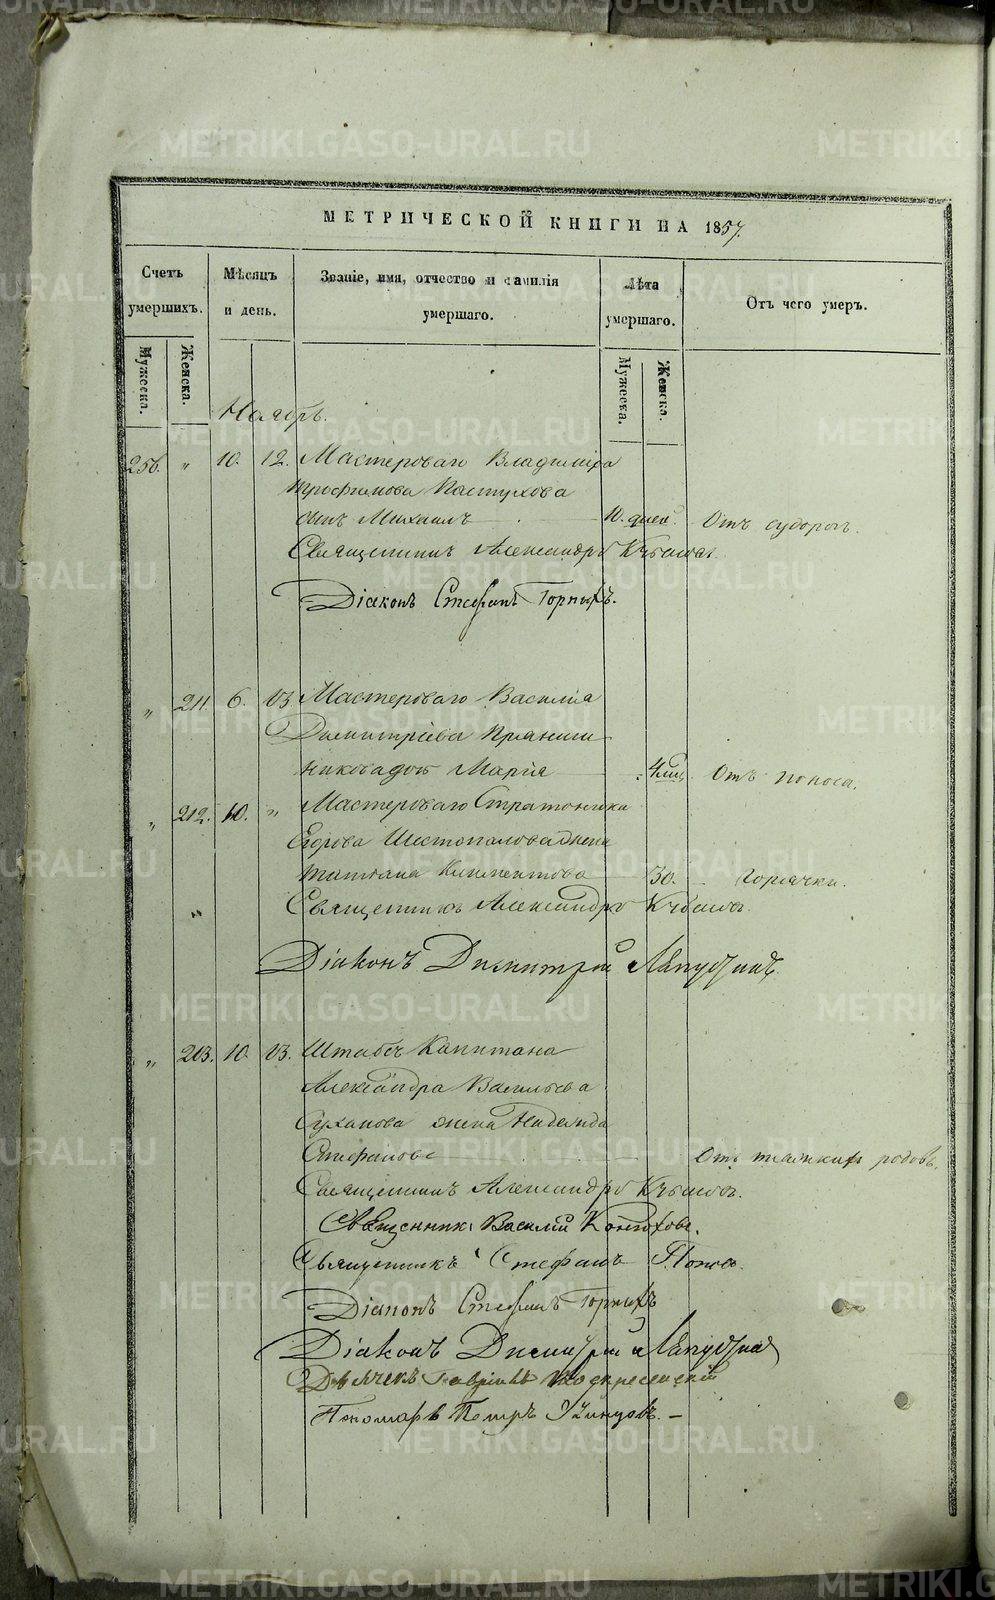 МЕТРИЧЕСКОЙ КНИГИ НА 1857.
Счетъ умершихъ.
Мѣсяцъ и день.
Званіе, имя, отчество и фамилія умершаго.
Лѣта умершаго.
Отъ чего умеръ.
Мужеска.
Женска.
Мужеска.
Женска.
Ноябрь.
256. " 10. 12. Мастероваго Владиміра
Трофимова Пастухова
сынъ Михаилъ 10. дней. Отъ судорогъ.
Священникъ Александръ
Діаконъ Стефанъ Горныхъ.
" 211. 6. 13. Мастероваго Василія
Димитріева Пряниш
никова дочь Марія 4 мѣс. Отъ поноса.
" 212. 10. " Мастероваго Стратоника
Егорова Шестопалова жена
Татіана Климентова 30. горячки.
"
Священникъ Александръ
Діаконъ Димитрій
" 213. 10. 13. Штабсъ Капитана
Александра Васильева
Суханова жена Надежда
Стефанова Отъ тяжкихъ родовъ.
Священникъ Александръ
Священникъ Василій Конюховъ.
Священникъ Стефанъ Поповъ.
Діаконъ Стефанъ Горныхъ
Діаконъ Димитрій
Дьячекъ Гавріилъ Воскресенскій
Пономарь Петръ Удинцовъ.
METRIKI.GASO-URAL.RU